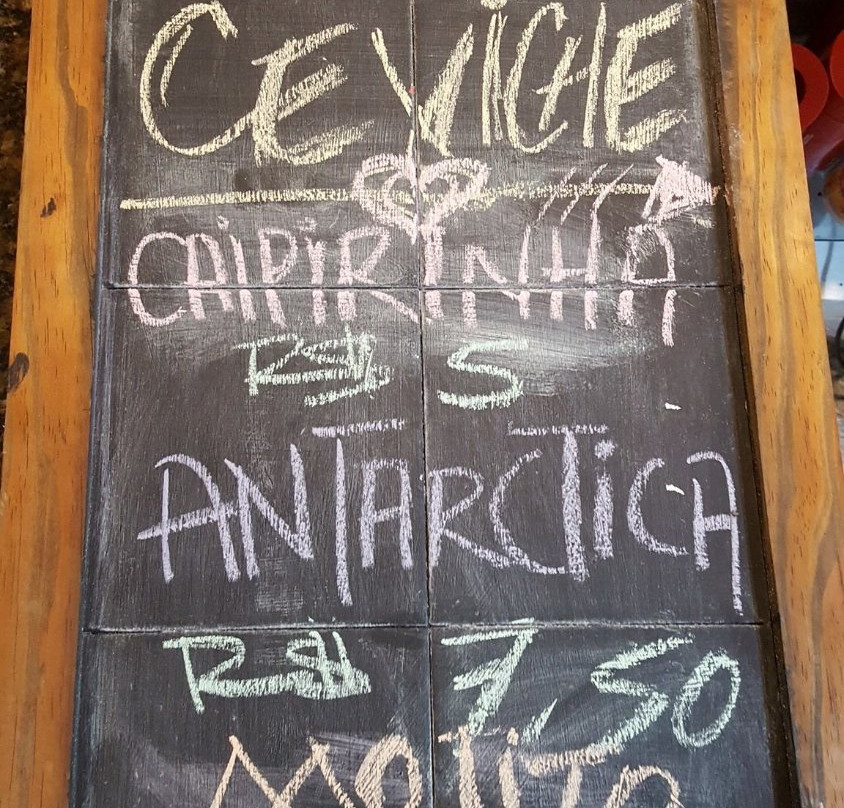 CEVICHE
CAIPIRINHA
R$ 5
ANTARCTICA
R$ 7,50
MOJITO